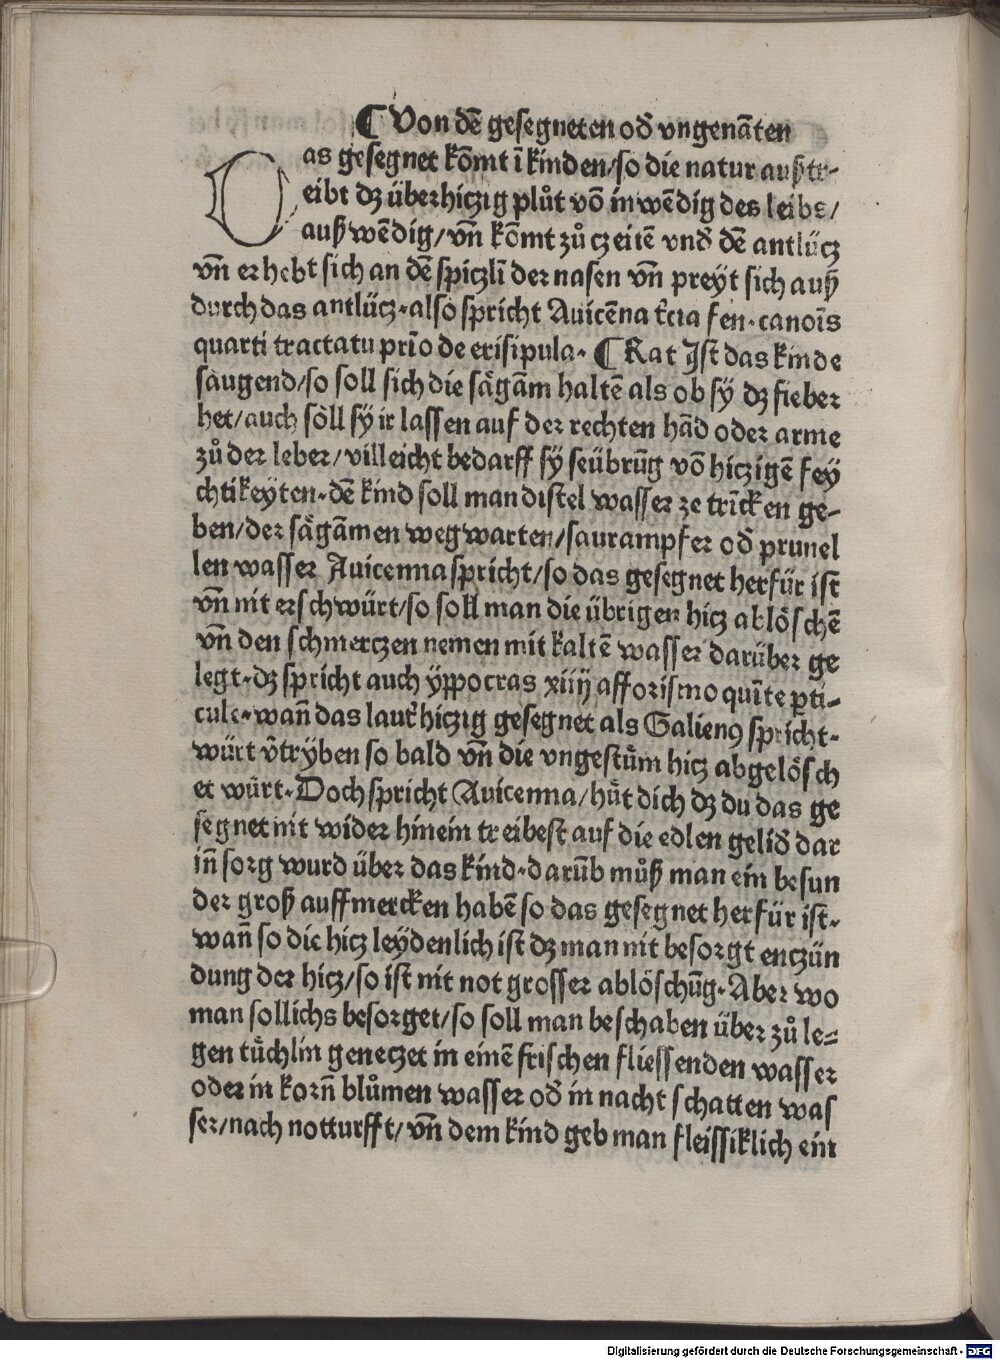 ¶ Von dē gesegneten od̄ vngenāten
Das gesegnet kōmt ī kinden/so die natur außtr-
eibt dz überhiczig plůt vō inwēdig des leibs/
außwēdig/vn̄ kōmt zů czeitē vnd̄ dē antlücz
vn̄ erhebt sich an dē spiczlī der nasen vn̄ preyt sich auß
durch das antlücz·also spricht Auicēna t̄cia fen·canoīs
quarti tractatu prīo de erisipula· ¶ Rat Ist das kinde
saugend/so soll sich die sågām haltē als ob sy dz fieber
het/auch soll sy ir lassen auf der rechten hād oder arme
zů der leber/villeicht bedarff sy seübrūg vō hiczigē fey
chtikeyten·dē kind soll man distel wasser ze trīcken ge-
ben/der sågāmen wegwarten/saurampfer od̄ prunel
len wasser Auicenna spricht/so das gesegnet herfür ist
vn̄ nit erschwürt/so soll man die übrigen hicz ablöschē
vn̄ den schmerczen nemen mit kaltē wasser darüber ge
legt·dz spricht auch ÿppocras xiiij afforismo quīte ꝑti-
cule·wan̄ das laut̄ hiczig gesegnet als Galienꝯ spricht·
würt v̄trÿben so bald vn̄ die vngestům hicz abgelösch
et würt·Doch spricht Auicenna/hůt dich dz du das ge
segnet nit wider hinein treibest auf die edlen gelid̄ dar
in̄ sorg wurd über das kind·darūb můß man ein besun
der groß auffmercken habē so das gesegnet herfür ist·
wan̄ so die hicz leÿdenlich ist dz man nit besorgt enczün
dung der hicz/so ist nit not grosser ablöschūg·Aber wo
man sollichs besorget/so soll man beschaben über zů le-
gen tůchlin geneczet in einē frischen fliessenden wasser
oder in korn̄ blůmen wasser od̄ in nachtschatten was
ser/nach notturfft/vn̄ dem kind geb man fleissiklich ein
Digitalisierung gefördert durch die Deutsche Forschungsgemeinschaft - DFG